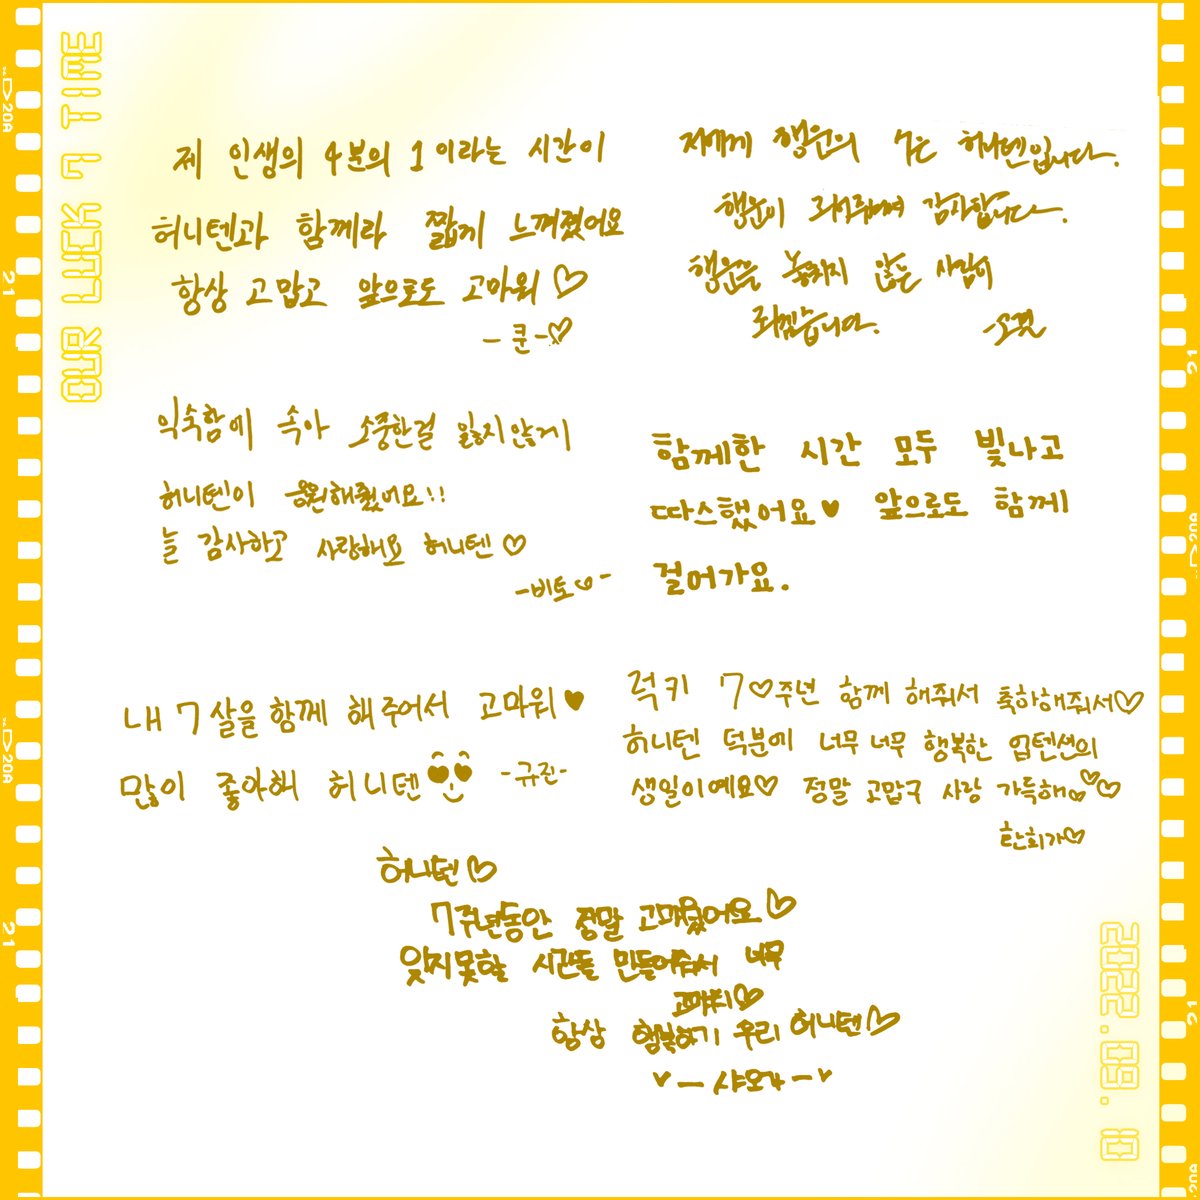 OUR LUCK 7 TIME
제 인생의 4분의 1이라는 시간이
허니텐과 함께라 짧게 느껴졌어요
항상 고맙고 앞으로도 고마워♡
-쿤-♡
저에게 행운의 7은 허니텐입니다.
행운이 되어주셔서 감사합니다.
행운을 놓치지 않는 사람이
되겠습니다.
익숙함에 속아 소중한걸 잃지않게
허니텐이 응원해줬어요!!
늘 감사하고 사랑해요 허니텐♡
-비토♡-
함께한 시간 모두 빛나고
따스했어요♥ 앞으로도 함께
걸어가요.
내 7살을 함께 해주어서 고마워♥
많이 좋아해 허니텐 -규진-
럭키 7♡주년 함께 해줘서 축하해줘서♡
허니텐 덕분에 너무 너무 행복한 업텐션의
생일이예요♡ 정말 고맙구 사랑 가득해♡♡♡
환희가♡
허니텐♡
7주년동안 정말 고마웠어요♡
잊지못할 시간들 만들어줘서 너무
고마워♡
항상 행복하기 우리 허니텐♡
♥-샤오가-♥
2022.09.10
21
21
21
21
▷20A
▷20A
▷20A
20A